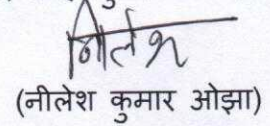 नीलेश
(नीलेश कुमार ओझा)